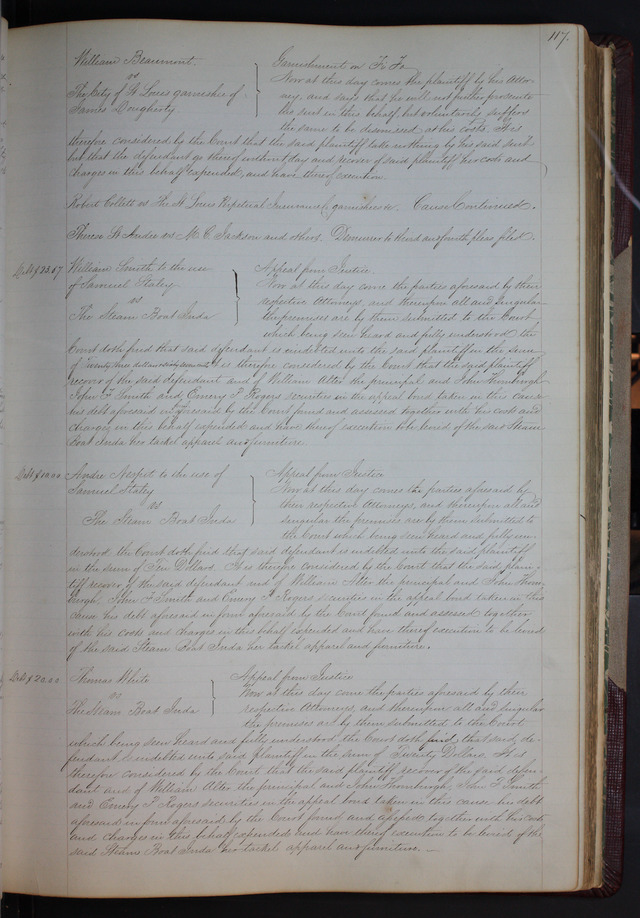 117.
William Beaumont. Garnishment on Fi Fa
vs Now at this day comes the plaintiff by his Attor-
The City of St Louis garnishee of ney, and says that he will not further prosecute
James Dougherty the suit in this behalf, but voluntarily suffers
the same to be dismissed, at his costs. It is
therefore considered by the Court that the said plaintiff take nothing by his said suit
but that the defendant go thereof without day and recover of said plaintiff his costs and
charges in this behalf expended, and have thereof execution.
Robert Collett vs The St Louis Perpetual Insurance Co garnishee &c. Cause Continued.
Theresa St Andre vs M. C. Jackson and others. Demurrer to third and fourth pleas filed.
Debt $23.67 William Smith to the use Appeal from Justice
of Samuel Staley Now at this day come the parties aforesaid by their
vs respective Attorneys, and thereupon all and singular
The Steam Boat Juda the premises are by them submitted to the Court
which being seen heard and fully understood the
Court doth find that said defendant is indebted unto the said plaintiff in the sum
of Twenty three dollars sixty seven cents It is therefore considered by the Court that the said plaintiff
recover of the said defendant and of William Alter the principal and John Thornburgh
John F. Smith and Emery P. Rogers securities in the appeal bond taken in this cause
his debt aforesaid in form aforesaid by the Court found and assessed together with his costs and
charges in this behalf expended and have thereof execution to be levied of the said Steam
Boat Juda her tackel apparel and furniture.
Debt $10.00 Andre Nespet to the use of Appeal from Justice
Samuel Staley Now at this day comes the parties aforesaid by
vs their respective Attorneys, and thereupon all and
The Steam Boat Juda singular the premises are by them submitted to
the Court which being seen heard and fully un-
derstood the Court doth find that said defendant is indebted unto the said plaintiff
in the sum of Ten Dollars. It is therefore considered by the Court that the said plain-
tiff recover of the said defendant and of William Alter the principal and John Thorn-
burgh, John F. Smith and Emery P. Rogers securities in the appeal bond taken in this
cause his debt aforesaid in form aforesaid by the Court found and assessed together
with his costs and charges in this behalf expended and have thereof execution to be levied
of the said Steam Boat Juda her tackel apparel and furniture.
Debt $20.00 Thomas White Appeal from Justice
vs Now at this day come the parties aforesaid by their
The Steam Boat Juda respective Attorneys, and thereupon all and singular
the premises are by them submitted to the Court
which being seen heard and fully understood, the Court doth find, that said, de-
fendant is indebted unto said plaintiff in the sum of Twenty Dollars. It is
therefore considered by the Court that the said plaintiff recover of the said defen-
dant and of William Alter the principal and John Thornburgh, John F. Smith
and Emery P. Rogers securities in the appeal bond taken in this cause his debt
aforesaid in form aforesaid by the Court found and assessed together with his costs
and charges in this behalf expended and have thereof execution to be levied of the
said Steam Boat Juda her tackel apparel and furniture. —